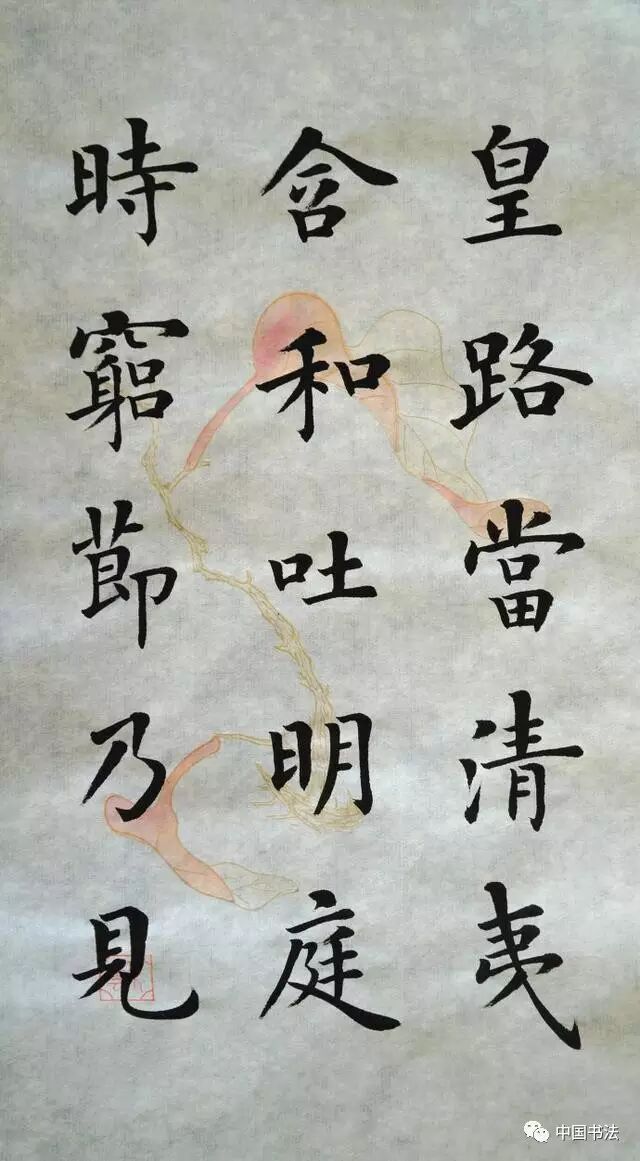 皇路當清夷
含和吐明庭
時窮節乃見
中国书法